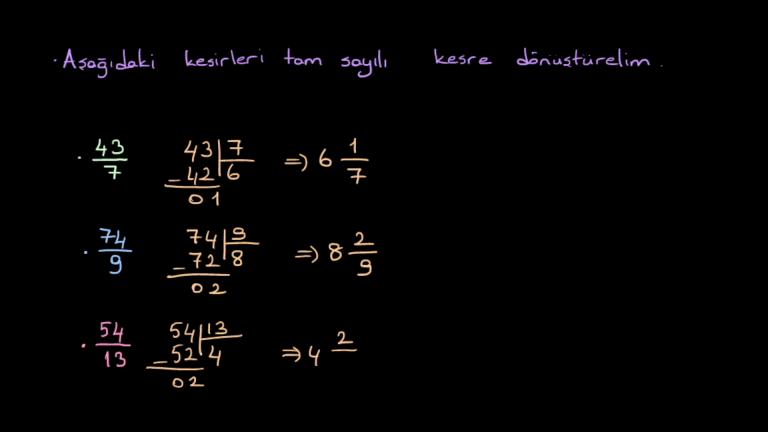 · Aşağıdaki kesirleri tam sayılı kesre dönüştürelim.
· 43/7 43 | 7 => 6 1/7
- 42 6
01
· 74/9 74 | 9 => 8 2/9
- 72 8
02
· 54/13 54 | 13 => 4 2/
- 52 4
02